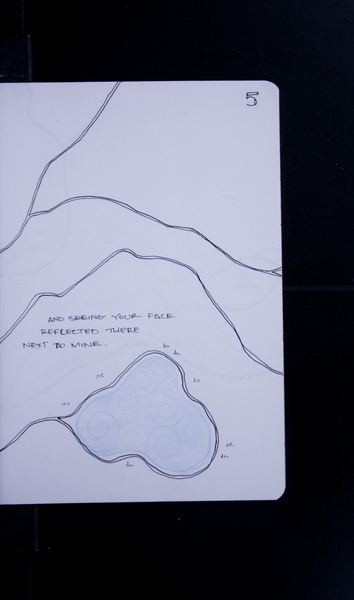 5
AND SEEING YOUR FACE
REFLECTED THERE
NEXT TO MINE.